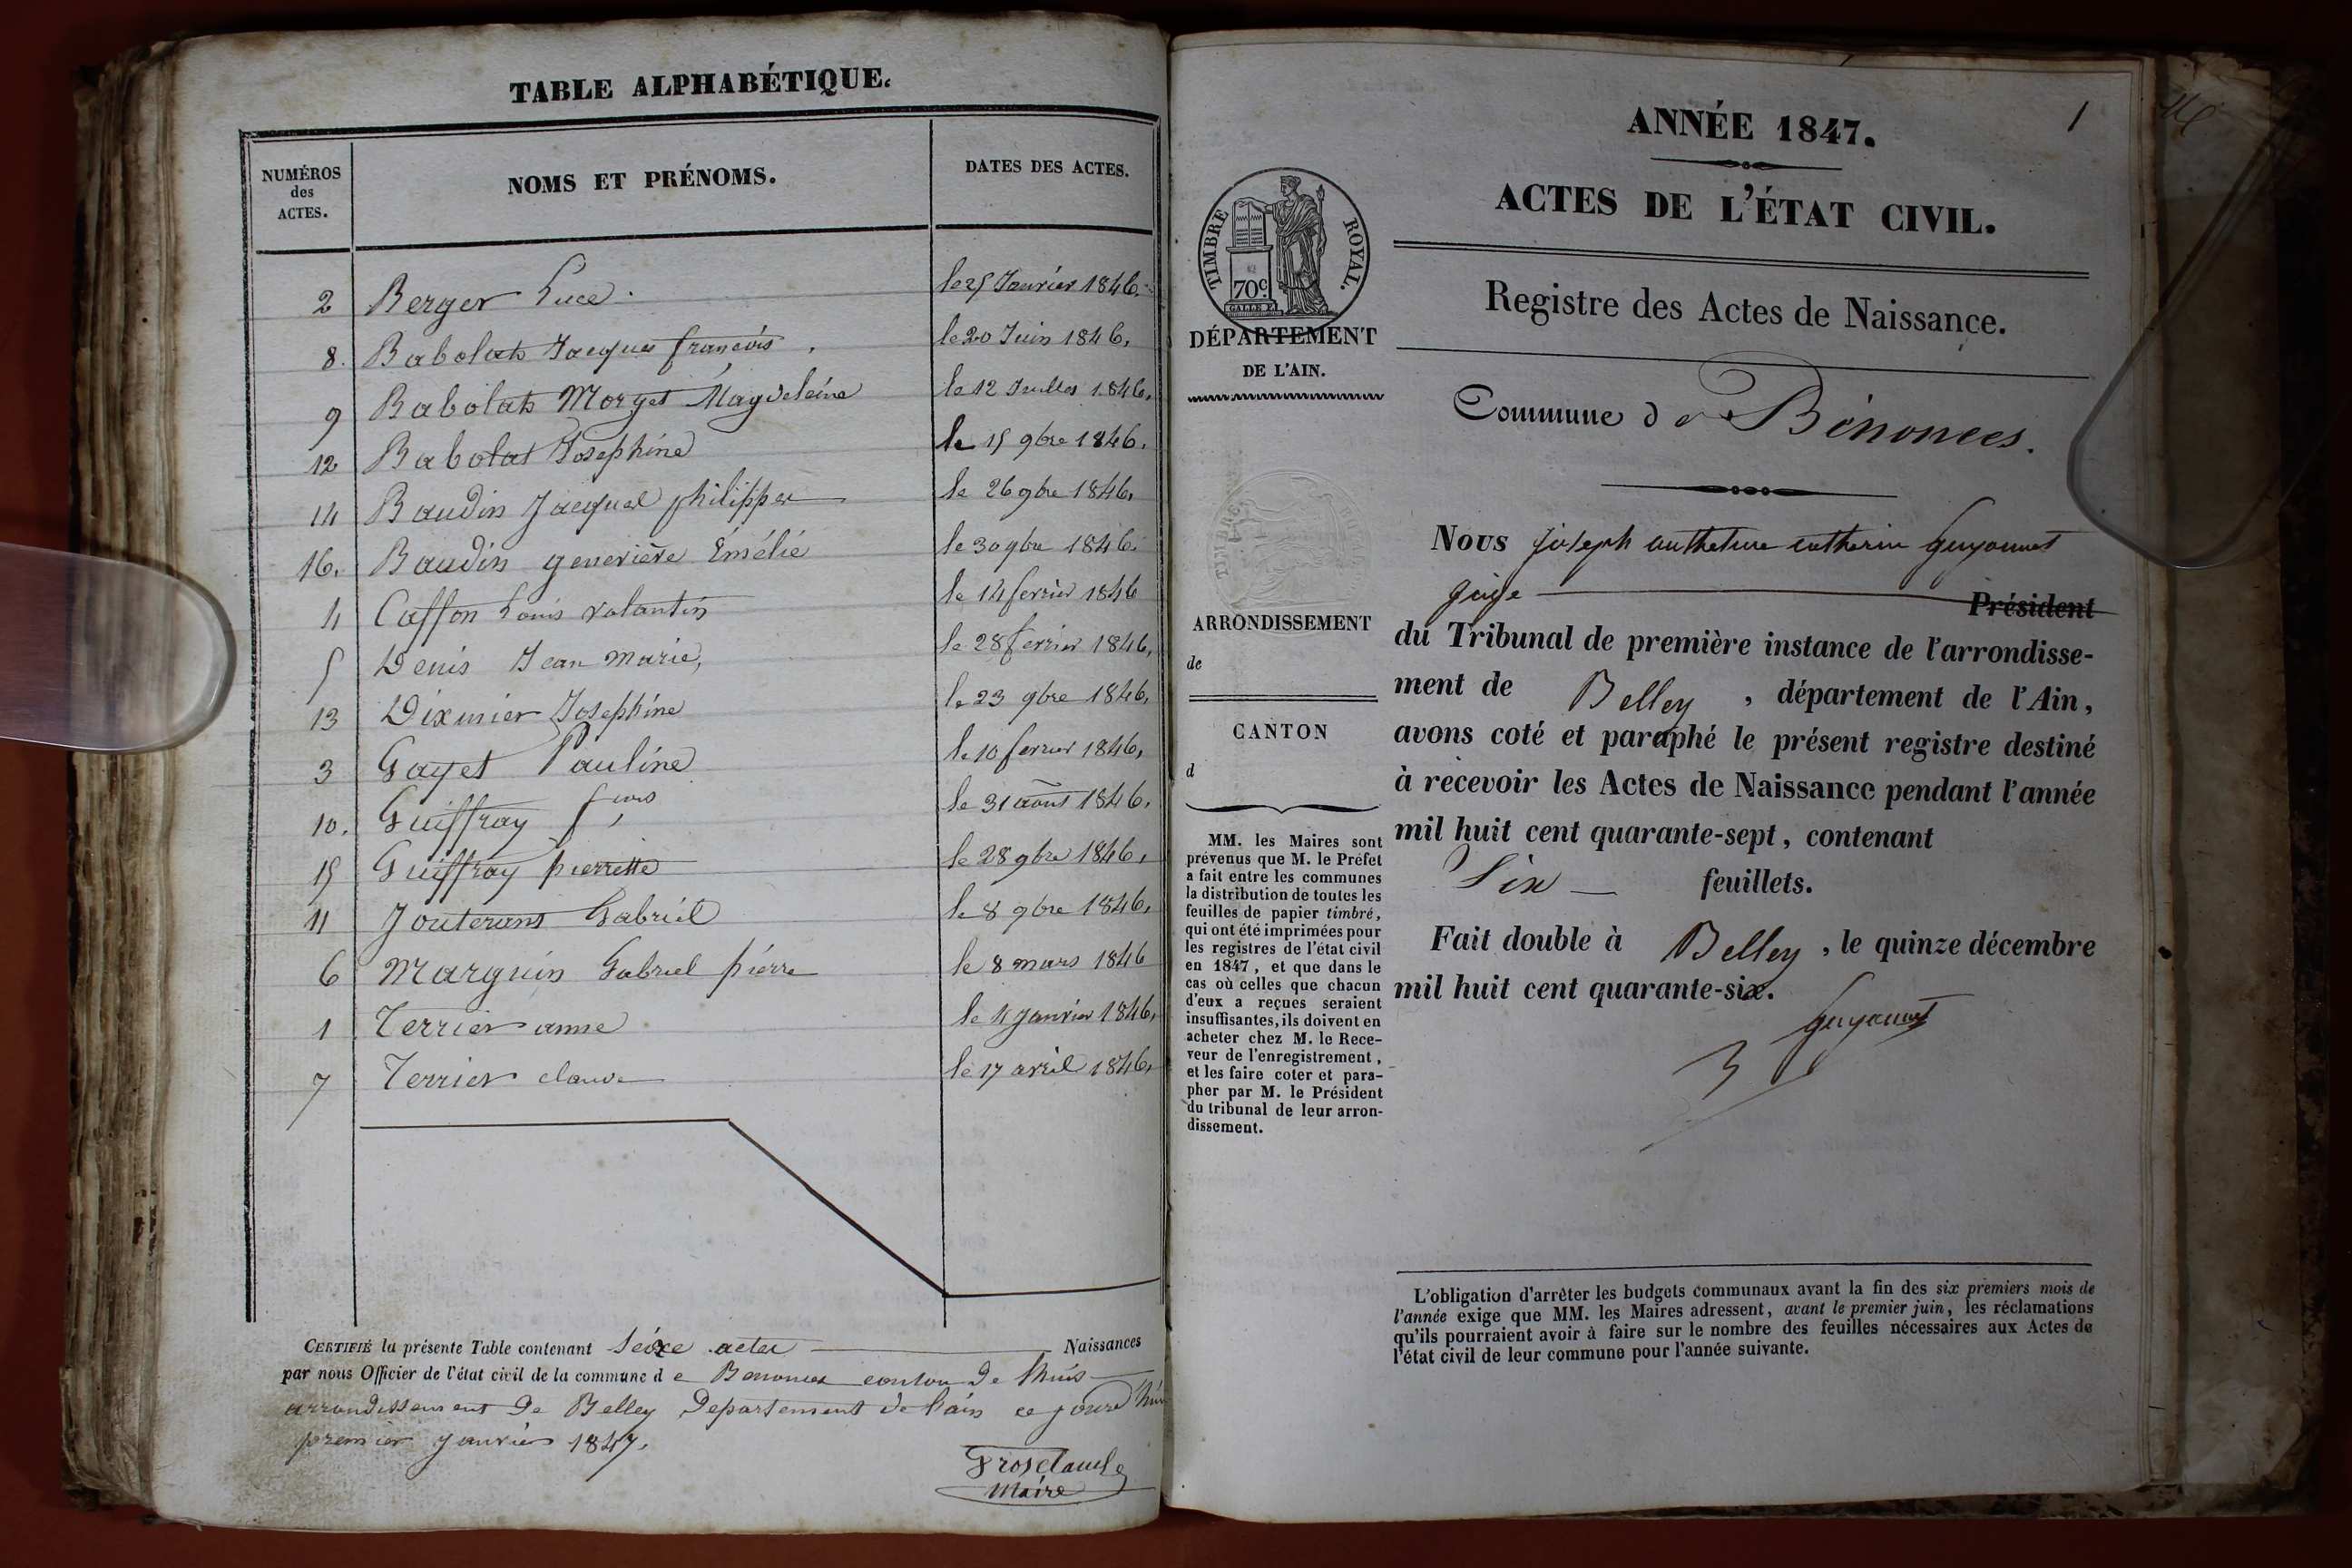 TABLE ALPHABÉTIQUE.
NUMÉROS des ACTES.
NOMS ET PRÉNOMS.
DATES DES ACTES.
2 Berger Luce. le 25 Janvier 1846.
8. Babolat Jacques françois, le 20 Juin 1846,
9 Babolat Morget Magdeleine le 12 Juillet 1846,
12 Babolat Josephine le 15 9bre 1846.
14 Baudin Jacques philippe le 26 9bre 1846,
16. Baudin genevière Émélie le 30 9bre 1846.
4 Caffon Louis valantin le 14 fevrier 1846
5 Denis Jean Marie, le 28 fevrier 1846,
13 Dixmier Josephine le 23 9bre 1846,
3 Gayet Pauline le 10 fevrier 1846,
10. Guiffray fçois le 31 août 1846.
15 Guiffray pierrette le 28 9bre 1846,
11 Gabriel le 8 9bre 1846,
6 Marguin Gabriel pierre le 8 mars 1846
1 Terrier anne le 4 Janvier 1846,
7 Terrier claude le 17 avril 1846,
CERTIFIÉ la présente Table contenant Seize actes Naissances
par nous Officier de l'état civil de la commune de Benonces conton de lhuis
arrondissement de Belley Departement de l'ain ce jourd'hui
premier janvier 1847.
Grosclaude
Maire
1
ANNÉE 1847.
ACTES DE L'ÉTAT CIVIL.
Registre des Actes de Naissance.
Commune de Bénonces.
TIMBRE ROYAL.
70c
DÉPARTEMENT
DE L'AIN.
ARRONDISSEMENT
de
CANTON
d
MM. les Maires sont
prévenus que M. le Préfet
a fait entre les communes
la distribution de toutes les
feuilles de papier timbré,
qui ont été imprimées pour
les registres de l'état civil
en 1847, et que dans le
cas où celles que chacun
d'eux a reçues seraient
insuffisantes, ils doivent en
acheter chez M. le Rece-
veur de l'enregistrement,
et les faire coter et para-
pher par M. le Président
du tribunal de leur arron-
dissement.
Nous Joseph anthelme catherin Guyonnet
juge Président
du Tribunal de première instance de l'arrondisse-
ment de Belley, département de l'Ain,
avons coté et paraphé le présent registre destiné
à recevoir les Actes de Naissance pendant l'année
mil huit cent quarante-sept, contenant
Six feuillets.
Fait double à Belley, le quinze décembre
mil huit cent quarante-six.
Guyonnet
L'obligation d'arrêter les budgets communaux avant la fin des six premiers mois de
l'année exige que MM. les Maires adressent, avant le premier juin, les réclamations
qu'ils pourraient avoir à faire sur le nombre des feuilles nécessaires aux Actes de
l'état civil de leur commune pour l'année suivante.